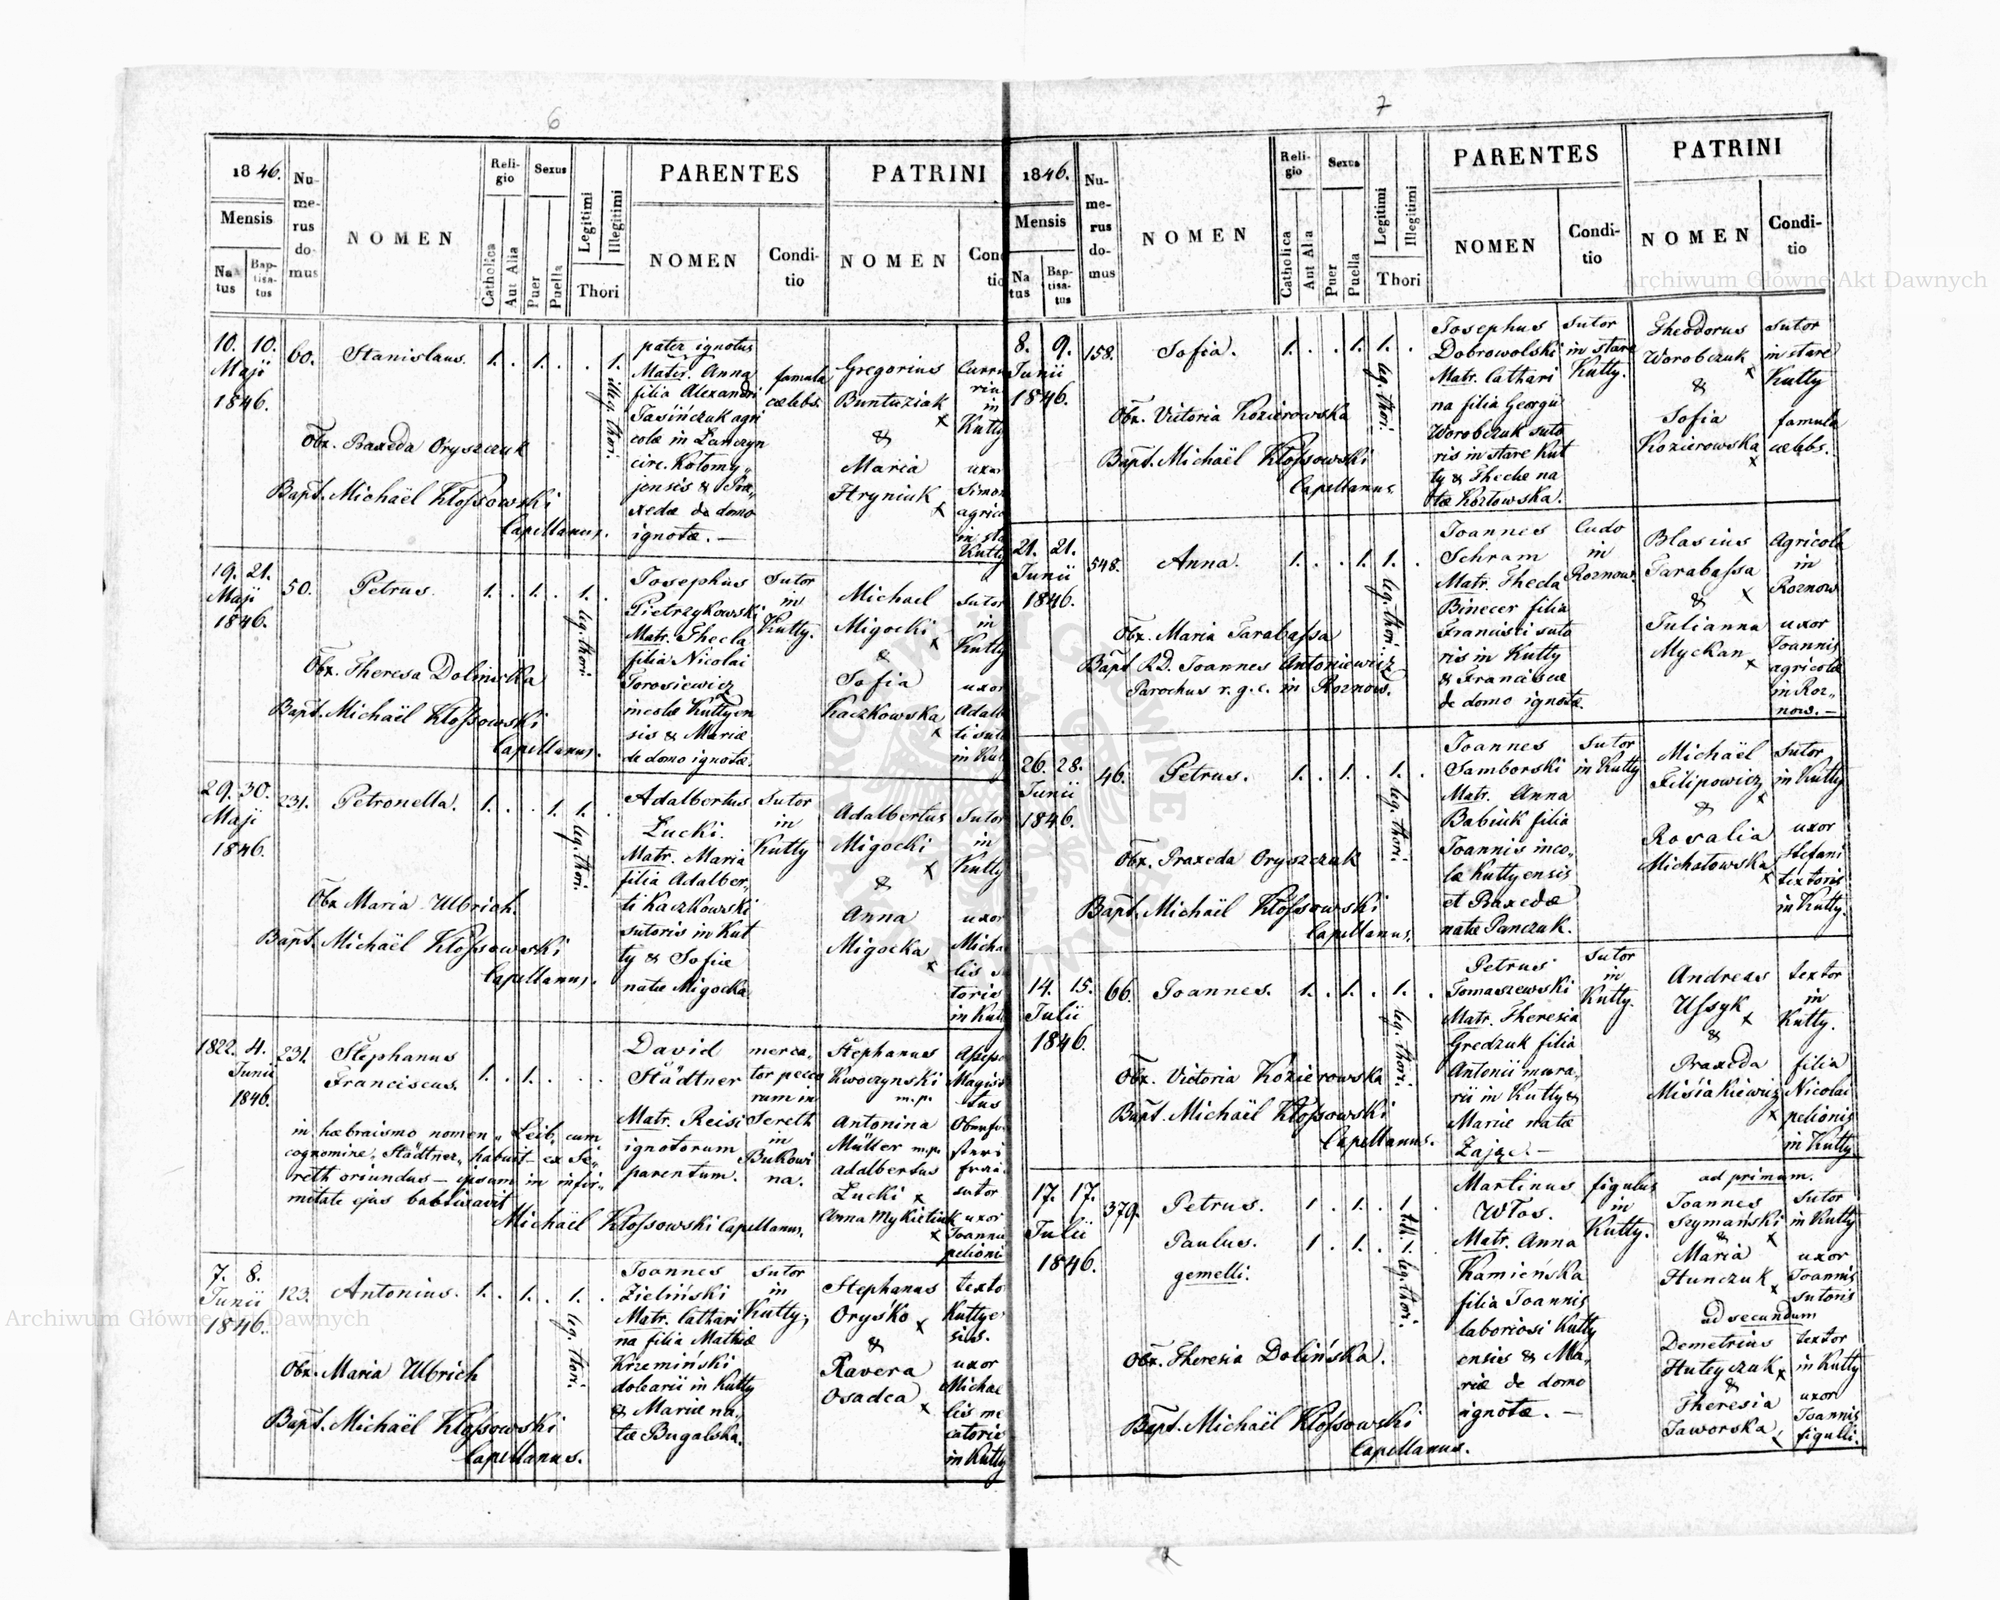 6
1846.
Mensis
Natus
Baptisatus
Numerus domus
NOMEN
Religio
Catholica
Aut Alia
Sexus
Puer
Puella
Legitimi
Illegitimi
Thori
PARENTES
NOMEN
Conditio
PATRINI
NOMEN
10. 10.
Maji
1846.
60.
Stanislaus.
1. . 1. . . 1.
illeg. thori.
Obx. Praxeda Oryszczuk
Bapt. Michaël Kłossowski
Capellanus.
pater ignotus
Mater. Anna
filia Alexandri
Jasińczuk agri
colæ in Łanczyn
circ. Kołomy„
jensis & Pra„
xedæ de domo
ignotæ. —
famula
cælebs.
Gregorius
Buntuziak
x
&
Maria
Hryniuk
x
in
Kutty
uxor
Simon
agrico
in sta
Kutty
19. 21.
Maji
1846.
50.
Petrus.
1. . 1. . 1. .
leg. thori.
Obx. Theresa Dolinska
Bapt. Michaël Kłossowski
Capellanus.
Josephus
Pietrzykowski
Matr. Thecla
filia Nicolai
Torosiewicz
incolæ Kuttyen
sis & Mariæ
de domo ignotæ.
Sutor
in
Kutty.
Michael
Migocki
x
&
Sofia
Kaczkowska
x
Sutor
in
Kutty
uxor
Adalb
ti suto
in Kut
29. 30.
Maji
1846.
231.
Petronella.
1. . . 1. 1. .
leg. thori.
Obx Maria Ulbrich.
Bapt. Michaël Kłossowski
Capellanus.
Adalbertus
Łucki.
Matr. Maria
filia Adalber„
ti Kaczkowski
sutoris in Kut
ty & Sofiæ
natæ Migocka
Sutor
in
Kutty
Adalbertus
Migocki
x
&
Anna
Migocka
x
Sutor
in
Kutty
uxor
Micha
lis su
toris
in Kut
1822. 4.
Junii
1846.
231.
Stephanus
Franciscus.
1. . 1. . . .
in hæbraismo nomen „Leib„ cum
cognomine „Städtner„ habuit — ex Se„
reth oriundus — ipsum in infir„
mitate ejus babtizavit
Michaël Kłossowski Capellanus.
David
Städtner
Matr. Reisi
ignotorum
parentum.
merca„
tor peco
rum in
Sereth
in
Bukowi
na.
Stephanus
Kwoczynski
m.p.
Antonina
Müller m.p.
Adalbertus
Łucki x
Anna Mykietiuk
x
Magist
sutor
uxor
Joannis
pelioni
7. 8.
Junii
1846.
123.
Antonius.
1. . 1. . 1. .
leg. thori.
Obx. Maria Ulbrich
Bapt. Michaël Kłossowski
Capellanus.
Joannes
Zieliński
Matr. Cathari
na filia Mathiæ
Krzemiński
dolearii in Kutty
& Mariæ na„
tæ Bugalska.
Sutor
in
Kutty,
Stephanus
Oryśko
x
&
Xavera
Osadca
x
texto
Kuttye
sis.
uxor
Michae
lis me
catoris
in Kutty
7
1846.
Mensis
Natus
Baptisatus
Numerus domus
NOMEN
Religio
Catholica
Aut Alia
Sexus
Puer
Puella
Legitimi
Illegitimi
Thori
PARENTES
NOMEN
Conditio
PATRINI
NOMEN
Conditio
8. 9.
Junii
1846.
158.
Sofia.
1. . . 1. 1. .
leg. thori.
Obx. Victoria Kozierowska
Bapt. Michaël Kłossowski
Capellanus.
Josephus
Dobrowolski
Matr. Cathari
na filia Georgii
Worobczuk suto
ris in stare Kut
ty & Theclæ na
tæ Kozłowska.
Sutor
in stare
Kutty.
Theodorus
Worobczuk
x
&
Sofia
Kozierowska
x
Sutor
in stare
Kutty
famula
cælebs.
21. 21.
Junii
1846.
548.
Anna.
1. . . 1. 1. .
leg. thori.
Obx. Maria Tarabassa
Bapt R.D. Joannes Antoniewicz
Parochus r. g. c. in Rożnow.
Joannes
Schram
Matr. Thecla
Binecer filia
Francisci suto
ris in Kutty
& Franciscæ
de domo ignotæ.
Ludo
in
Rożnow.
Blasius
Tarabassa
x
&
Julianna
Myckan
x
Agricola
in
Roznow
uxor
Joannis
agricolæ
in Roz„
now. —
26. 28.
Junii
1846.
46.
Petrus.
1. . 1. . 1. .
leg. thori.
Obx. Praxeda Oryszczuk
Bapt. Michaël Kłossowski
Capellanus.
Joannes
Samborski
Matr. Anna
Babiuk filia
Joannis inco„
læ Kuttyensis
et Praxedæ
natæ Panczuk.
Sutor
in Kutty
Michaël
Filipowicz
x
&
Rosalia
Michałowska
x
Sutor
in Kutty
uxor
Stefani
textoris
in Kutty.
14. 15.
Julii
1846.
66.
Joannes.
1. . 1. . 1. .
leg. thori.
Obx. Victoria Kozierowska
Bapt. Michaël Kłossowski
Capellanus.
Petrus
Tomaszewski
Matr. Theresia
Gredzuk filia
Antonii mura„
rii in Kutty &
Mariæ natæ
Zając. —
Sutor
in
Kutty.
Andreas
Ussyk
x
&
Praxeda
Misiakiewicz
x
textor
in
Kutty.
filia
Nicolai
pelionis
in Kutty
17. 17.
Julii
1846.
379.
Petrus.
1. . 1. . 1. .
Paulus.
1. . 1. . 1. .
gemelli.
leg. thori.
Obx. Theresia Dolińska.
Bapt. Michaël Kłossowski
Capellanus.
Martinus
Włos.
Matr. Anna
Kamieńska
filia Joannis
laboriosi Kutty
ensis & Ma„
riæ de domo
ignotæ. —
figulus
in
Kutty.
ad primum.
Joannes
Szymański
x
&
Maria
Hunczuk
x
ad secundum
Demetrius
Huteyczuk
x
&
Theresia
Jaworska
x
Sutor
in Kutty
uxor
Joannis
Sutoris
textor
in Kutty
uxor
Joannis
figuli.
Archiwum Główne Akt Dawnych
Archiwum Główne Akt Dawnych